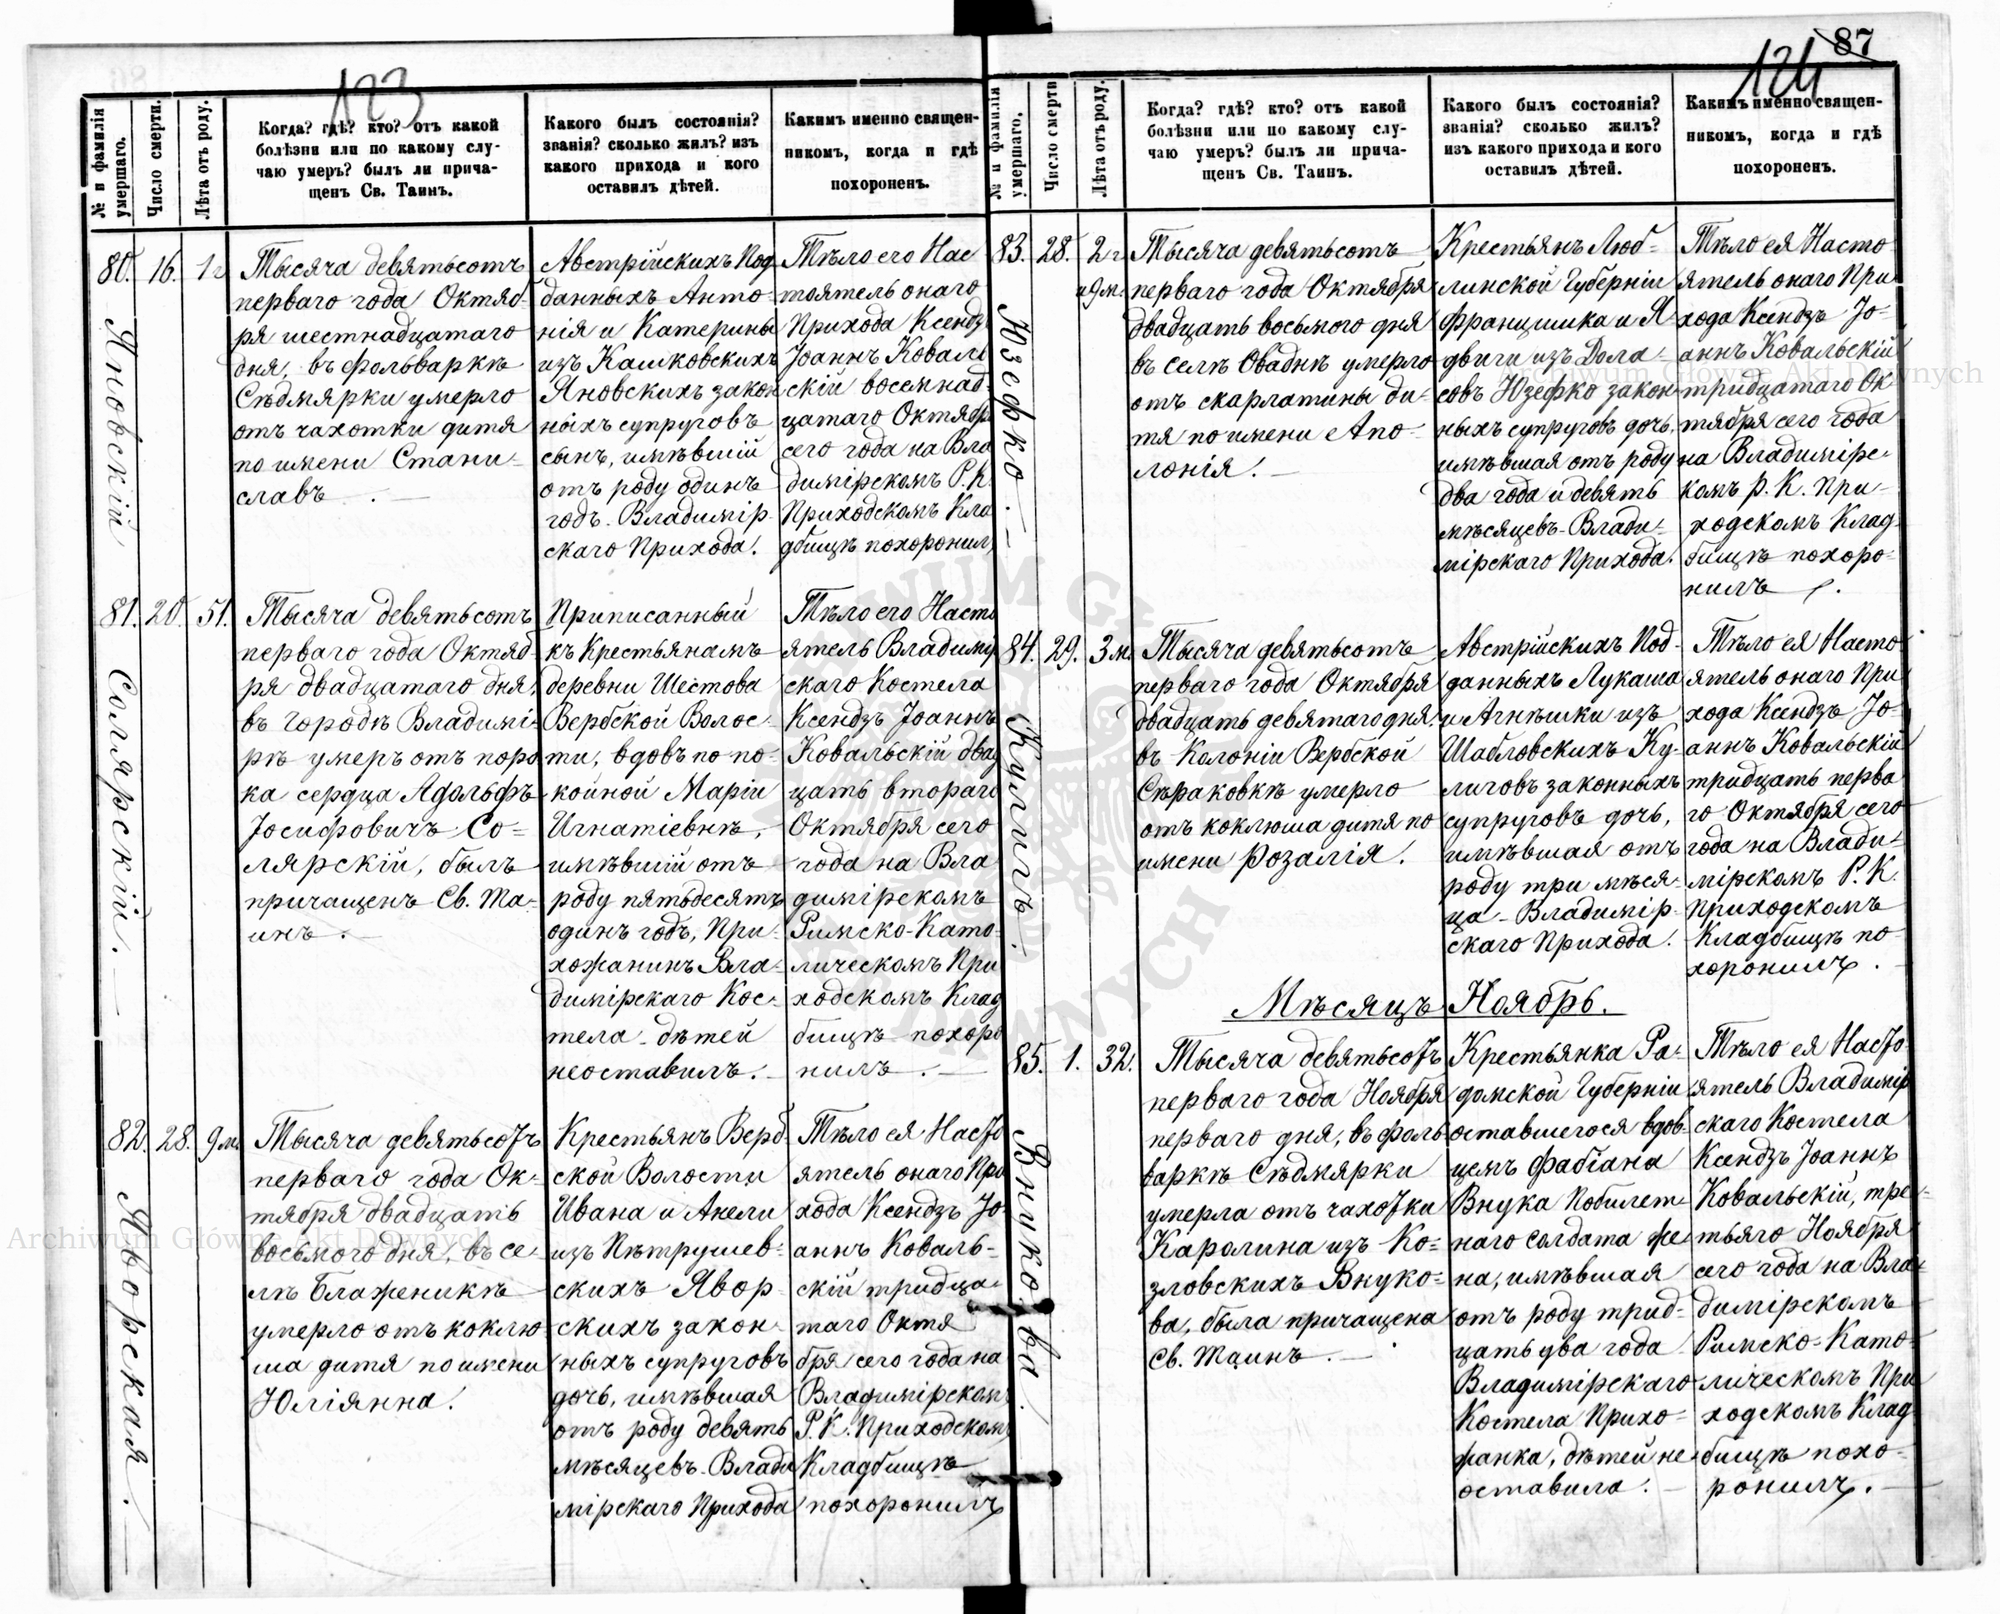 123
№ и фамилія умершаго.
Число смерти.
Лѣта отъ роду.
Когда? гдѣ? кто? отъ какой
болѣзни или по какому слу-
чаю умеръ? былъ ли прича-
щенъ Св. Таинъ.
Какого былъ состоянія?
званія? сколько жилъ? изъ
какого прихода и кого
оставилъ дѣтей.
Какимъ именно священ-
никомъ, когда и гдѣ
похороненъ.
80.
Яновскій
16.
1 г
Тысяча девятьсотъ
перваго года Октяб-
ря шестнадцатаго
дня, въ фольваркѣ
Сѣдмярки умерло
отъ чахотки дитя
по имени Стани-
славъ.
Австрійскихъ Под
данныхъ Анто-
нія и Катерины
изъ Кашковскихъ
Яновскихъ закон
ныхъ супруговъ
сынъ, имѣвшій
отъ роду одинъ
годъ. Владимір-
скаго Прихода.
Тѣло его Нас
тоятель онаго
Прихода Ксендз
Іоаннъ Коваль
скій восемнад-
цатаго Октября
сего года на Вла
димірскомъ Р. К.
Приходскомъ Кла
дбищѣ похоронил
81.
Солярскій.
20.
51.
Тысяча девятьсотъ
перваго года Октяб
ря двадцатаго дня,
въ городѣ Владимі-
рѣ умеръ отъ поро
ка сердца Адольфъ
Іосифовичъ Со-
лярскій, былъ
причащенъ Св. Та-
инъ.
Приписанный
къ Крестьянамъ
деревни Шестова
Вербской Волос-
ти, вдовъ по по-
койной Маріи
Игнатіевнѣ,
имѣвшій отъ
роду пятьдесятъ
одинъ годъ, При-
хожанинъ Вла-
димірскаго Кос-
тела - дѣтей
неоставилъ.
Тѣло его Насто
ятель Владимір
скаго Костела
Ксендзъ Іоаннъ
Ковальскій двад
цать втораго
Октября сего
года на Вла
димірскомъ
Римско-Като-
лическомъ При
ходскомъ Клад
бищѣ похоро
нилъ.
82.
Яворская.
28.
9 м.
Тысяча девятьсотъ
перваго года Ок-
тября двадцать
восьмого дня, въ се-
лѣ Блаженикѣ
умерло отъ коклю
ша дитя по имени
Юліянна.
Крестьянъ Верб
ской Волости
Ивана и Анели
изъ Пѣтрушев-
скихъ Явор-
скихъ закон-
ныхъ супруговъ
дочь, имѣвшая
отъ роду девять
мѣсяцевъ. Влади
мірскаго Прихода
Тѣло ея Насто
ятель онаго При
хода Ксендзъ Іо-
аннъ Коваль-
скій тридца-
таго Октя
бря сего года на
Владимірском
Р. К. Приходском
Кладбищѣ
похоронилъ
87
124
№ и фамилія умершаго.
Число смерти
Лѣта отъ роду.
Когда? гдѣ? кто? отъ какой
болѣзни или по какому слу-
чаю умеръ? былъ ли прича-
щенъ Св. Таинъ.
Какого былъ состоянія?
званія? сколько жилъ?
изъ какого прихода и кого
оставилъ дѣтей.
Какимъ именно священ-
никомъ, когда и гдѣ
похороненъ.
83.
Юзефко.
28.
2 г
и 9 м.
Тысяча девятьсотъ
перваго года Октября
двадцать восьмого дня
въ селѣ Оваднѣ умерло
отъ скарлатины ди-
тя по имени Апо-
лонія.
Крестьянъ Люб-
линской Губерніи
Францишка и Я
двиги изъ Дола-
совъ Юзефко закон
ныхъ супруговъ дочь,
имѣвшая отъ роду
два года и девять
мѣсяцевъ - Влади-
мірскаго Прихода.
Тѣло ея Насто
ятель онаго При
хода Ксендзъ Іо-
аннъ Ковальскій
тридцатаго Ок
тября сего года
на Владимірс-
комъ Р. К. При-
ходскомъ Клад-
бищѣ похоро-
нилъ.
84.
Кулигъ.
29.
3 м.
Тысяча девятьсотъ
перваго года Октября
двадцать девятаго дня
въ Колоніи Вербской
Сѣраковкѣ умерло
отъ коклюша дитя по
имени Розалія.
Австрійскихъ Под-
данныхъ Лукаша
и Агнѣшки изъ
Шабловскихъ Ку-
лиговъ законныхъ
супруговъ дочь,
имѣвшая отъ
роду три мѣся-
ца - Владимір-
скаго Прихода.
Тѣло ея Насто
ятель онаго При
хода Ксендзъ Іо-
аннъ Ковальскій
тридцать перва
го Октября сего
года на Влади-
мірскомъ Р. К.
Приходскомъ
Кладбищѣ по-
хоронилъ.
Мѣсяцъ Ноябрь.
85.
Внукова.
1.
32.
Тысяча девятьсотъ
перваго года Ноября
перваго дня, въ фоль
варкѣ Сѣдмярки
умерла отъ чахотки
Каролина изъ Ко-
зловскихъ Внуко-
ва, была причащена
Св. Таинъ.
Крестьянка Ра-
домской Губерніи
оставшегося вдов-
цемъ Фабіана
Внука Побилет-
наго солдата же
на, имѣвшая
отъ роду трид-
цать два года
Владимірскаго
Костела Прихо-
жанка, дѣтей не
оставила.
Тѣло ея Насто-
ятель Владимір
скаго Костела
Ксендзъ Іоаннъ
Ковальскій, тре-
тьяго Ноября
сего года на Вла-
димірскомъ
Римско-Като-
лическомъ При
ходскомъ Клад-
бищѣ похо-
ронилъ.
Archiwum Główne Akt Dawnych
Archiwum Główne Akt Dawnych